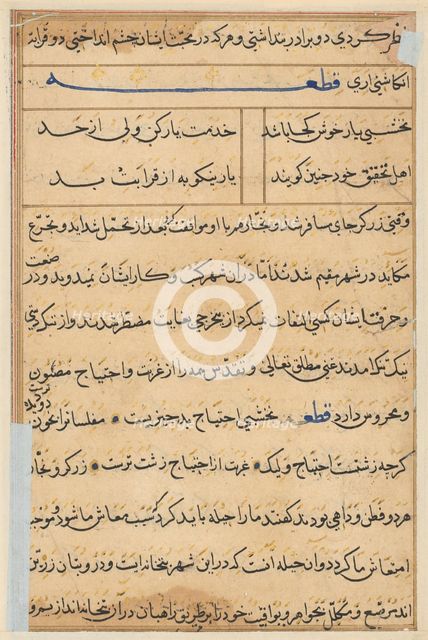 نظر کردی دو برادر پنداشتی و هر که در محبت ایشان چشم انداختی دو قرابه
انکاشتی اری قطعه
نخشبی یار خوش کجا باشد خدمت یار کن ولی از حد
اهل تحقیق خود چنین گویند یار نیکو به از قرابت بد
وقتی زرگر جای مسافر شد و نجار هم با او موافقت کرد بعد از تحمل شداید و تجرع
مکاید در شهر مقیم شدند اما در آن شهر کسب و کار ایشان نمیدوید و در صنعت
و حرفت ایشان کسی التفات نمیکرد از بیخرجی بغایت مضطر شدند و از تنکدستی
نیک تنک آمدند غنی مطلق تعالی و تقدس همه را از غربت و احتیاج مصئون
و محروس دارد قطعه نخشبی احتیاج بد چیزیست مفلسانرا نخون
گرچه زشتست احتیاج ولیک غربت از احتیاج زشت ترست زرگر و نجار
هر دو فطن و داهی بودند گفتند ما را حیله باید کرد که سبب معاش ما شود و موجب
انتعاش ما گردد و ان حیله آنست که در این شهر بتخانه ایست و درو بتان زرین
اند مرصع و مکلل بجواهر و یواقیت خود را بر طریق راهبان در آن بتخانه اندازیم و
Heritage
Heritage